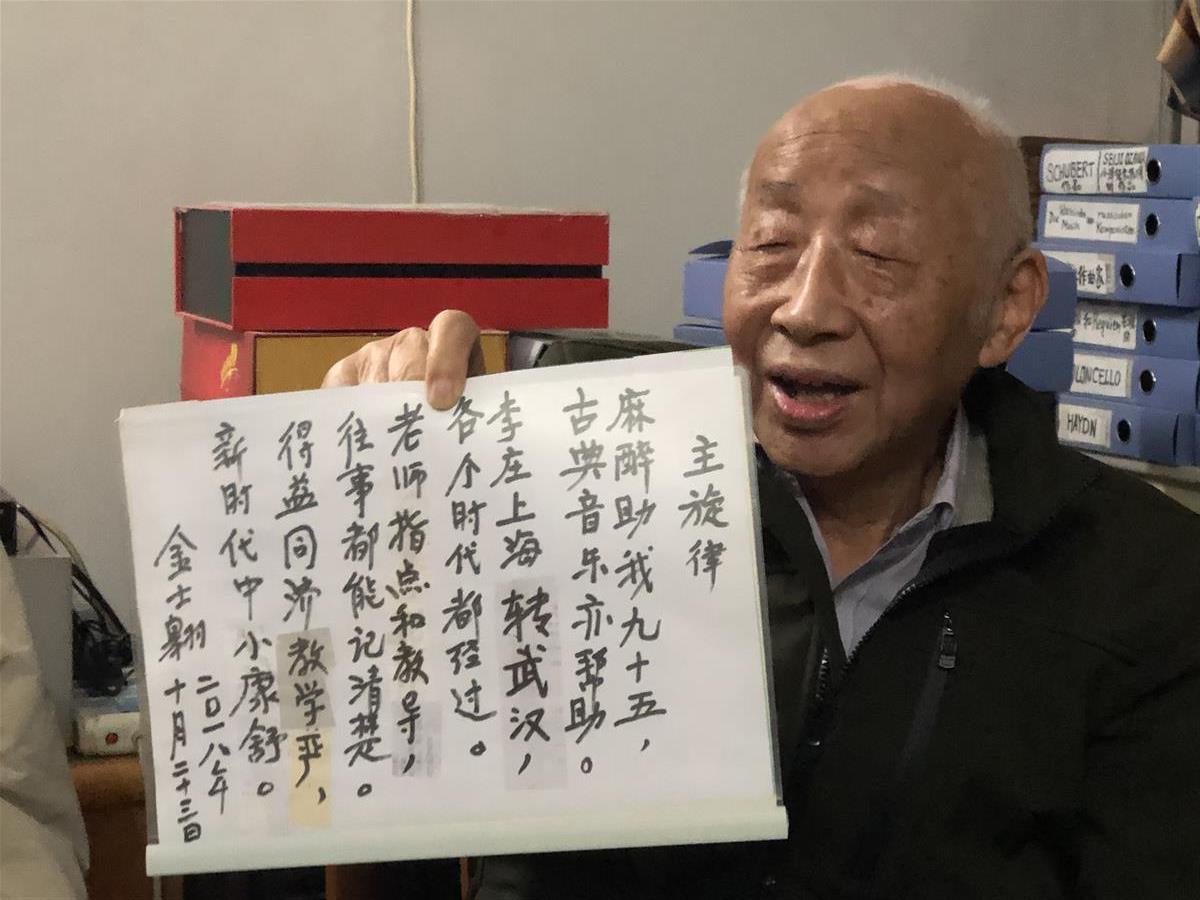 主旋律
麻醉助我九十五，
古典音乐亦帮助。
李庄上海转武汉，
各个时代都经过。
老师指点和教导，
往事都能记清楚。
得益同济教学严，
新时代中小康舒。
金士翱 二〇一八年
十月二十三日
SCHUBERT
SEIJI OZAWA
Die klassische Musik
russischen Komponisten
作曲家
和 Requiem
LONCELLO
HAYDN